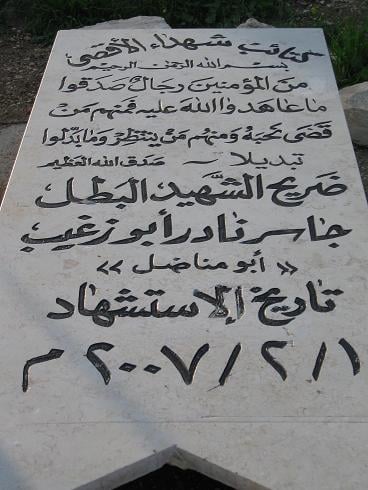 كتائب شهداء الأقصى
بسم الله الرحمن الرحيم
من المؤمنين رجال صدقوا
ما عاهدوا الله عليه فمنهم من
قضى نحبه ومنهم من ينتظر وما بدلوا
تبديلا ~ صدق الله العظيم
ضريح الشهيد البطل
جاسر نادر أبو زغيب
« أبو مناضل »
تاريخ الاستشهاد
٢٠٠٧/٢/١ م